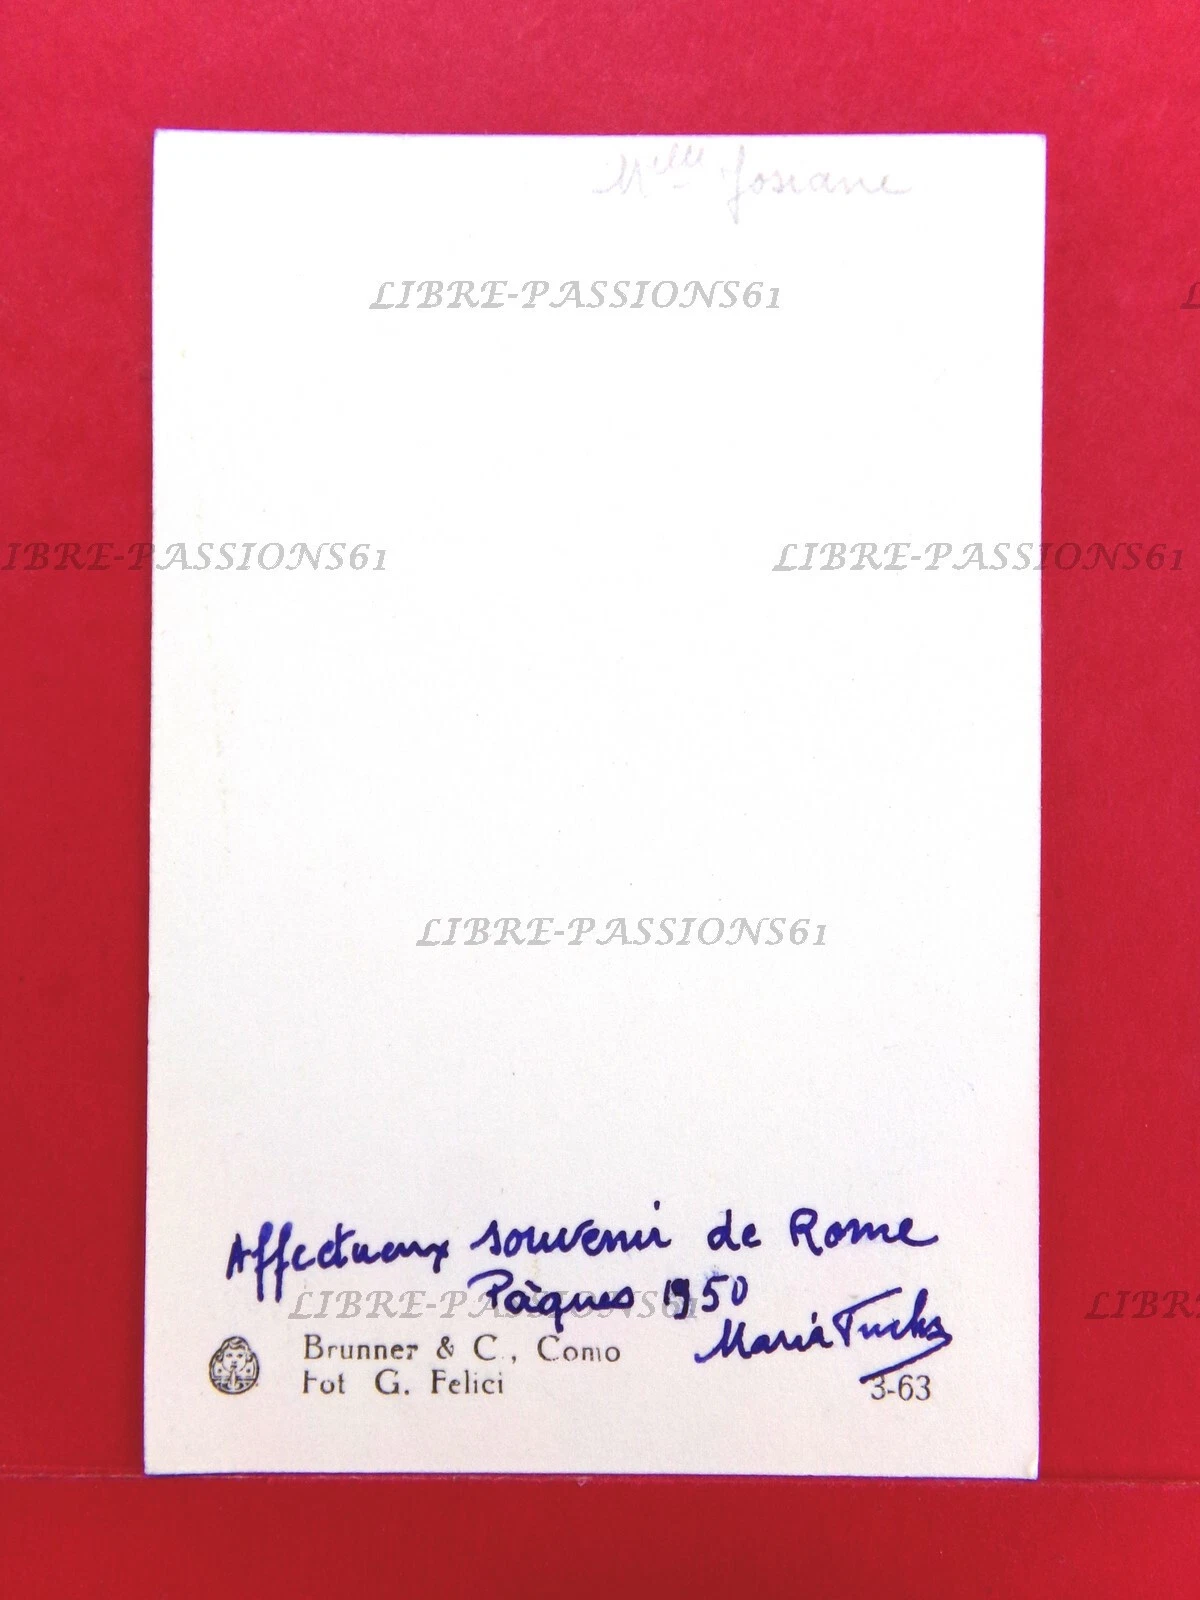 Mlle Josiane
LIBRE-PASSIONS61
IBRE-PASSIONS61 LIBRE-PASSIONS61
LIBRE-PASSIONS61
Affectueux souvenir de Rome
Pâques 1950
LIBRE-PASSIONS61 LIBRE-PA
Maria Fuchs
Brunner & C., Como
Fot G. Felici
3-63